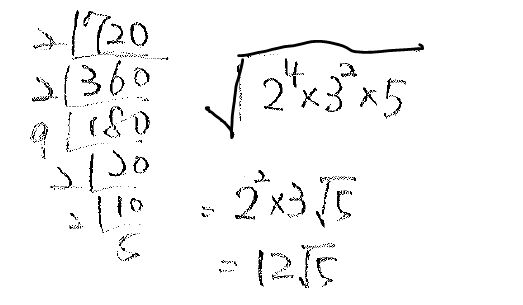 2 | 720
2 | 360
9 | 180
2 | 20
2 | 10
5
√(2⁴×3²×5)
= 2²×3√5
= 12√5